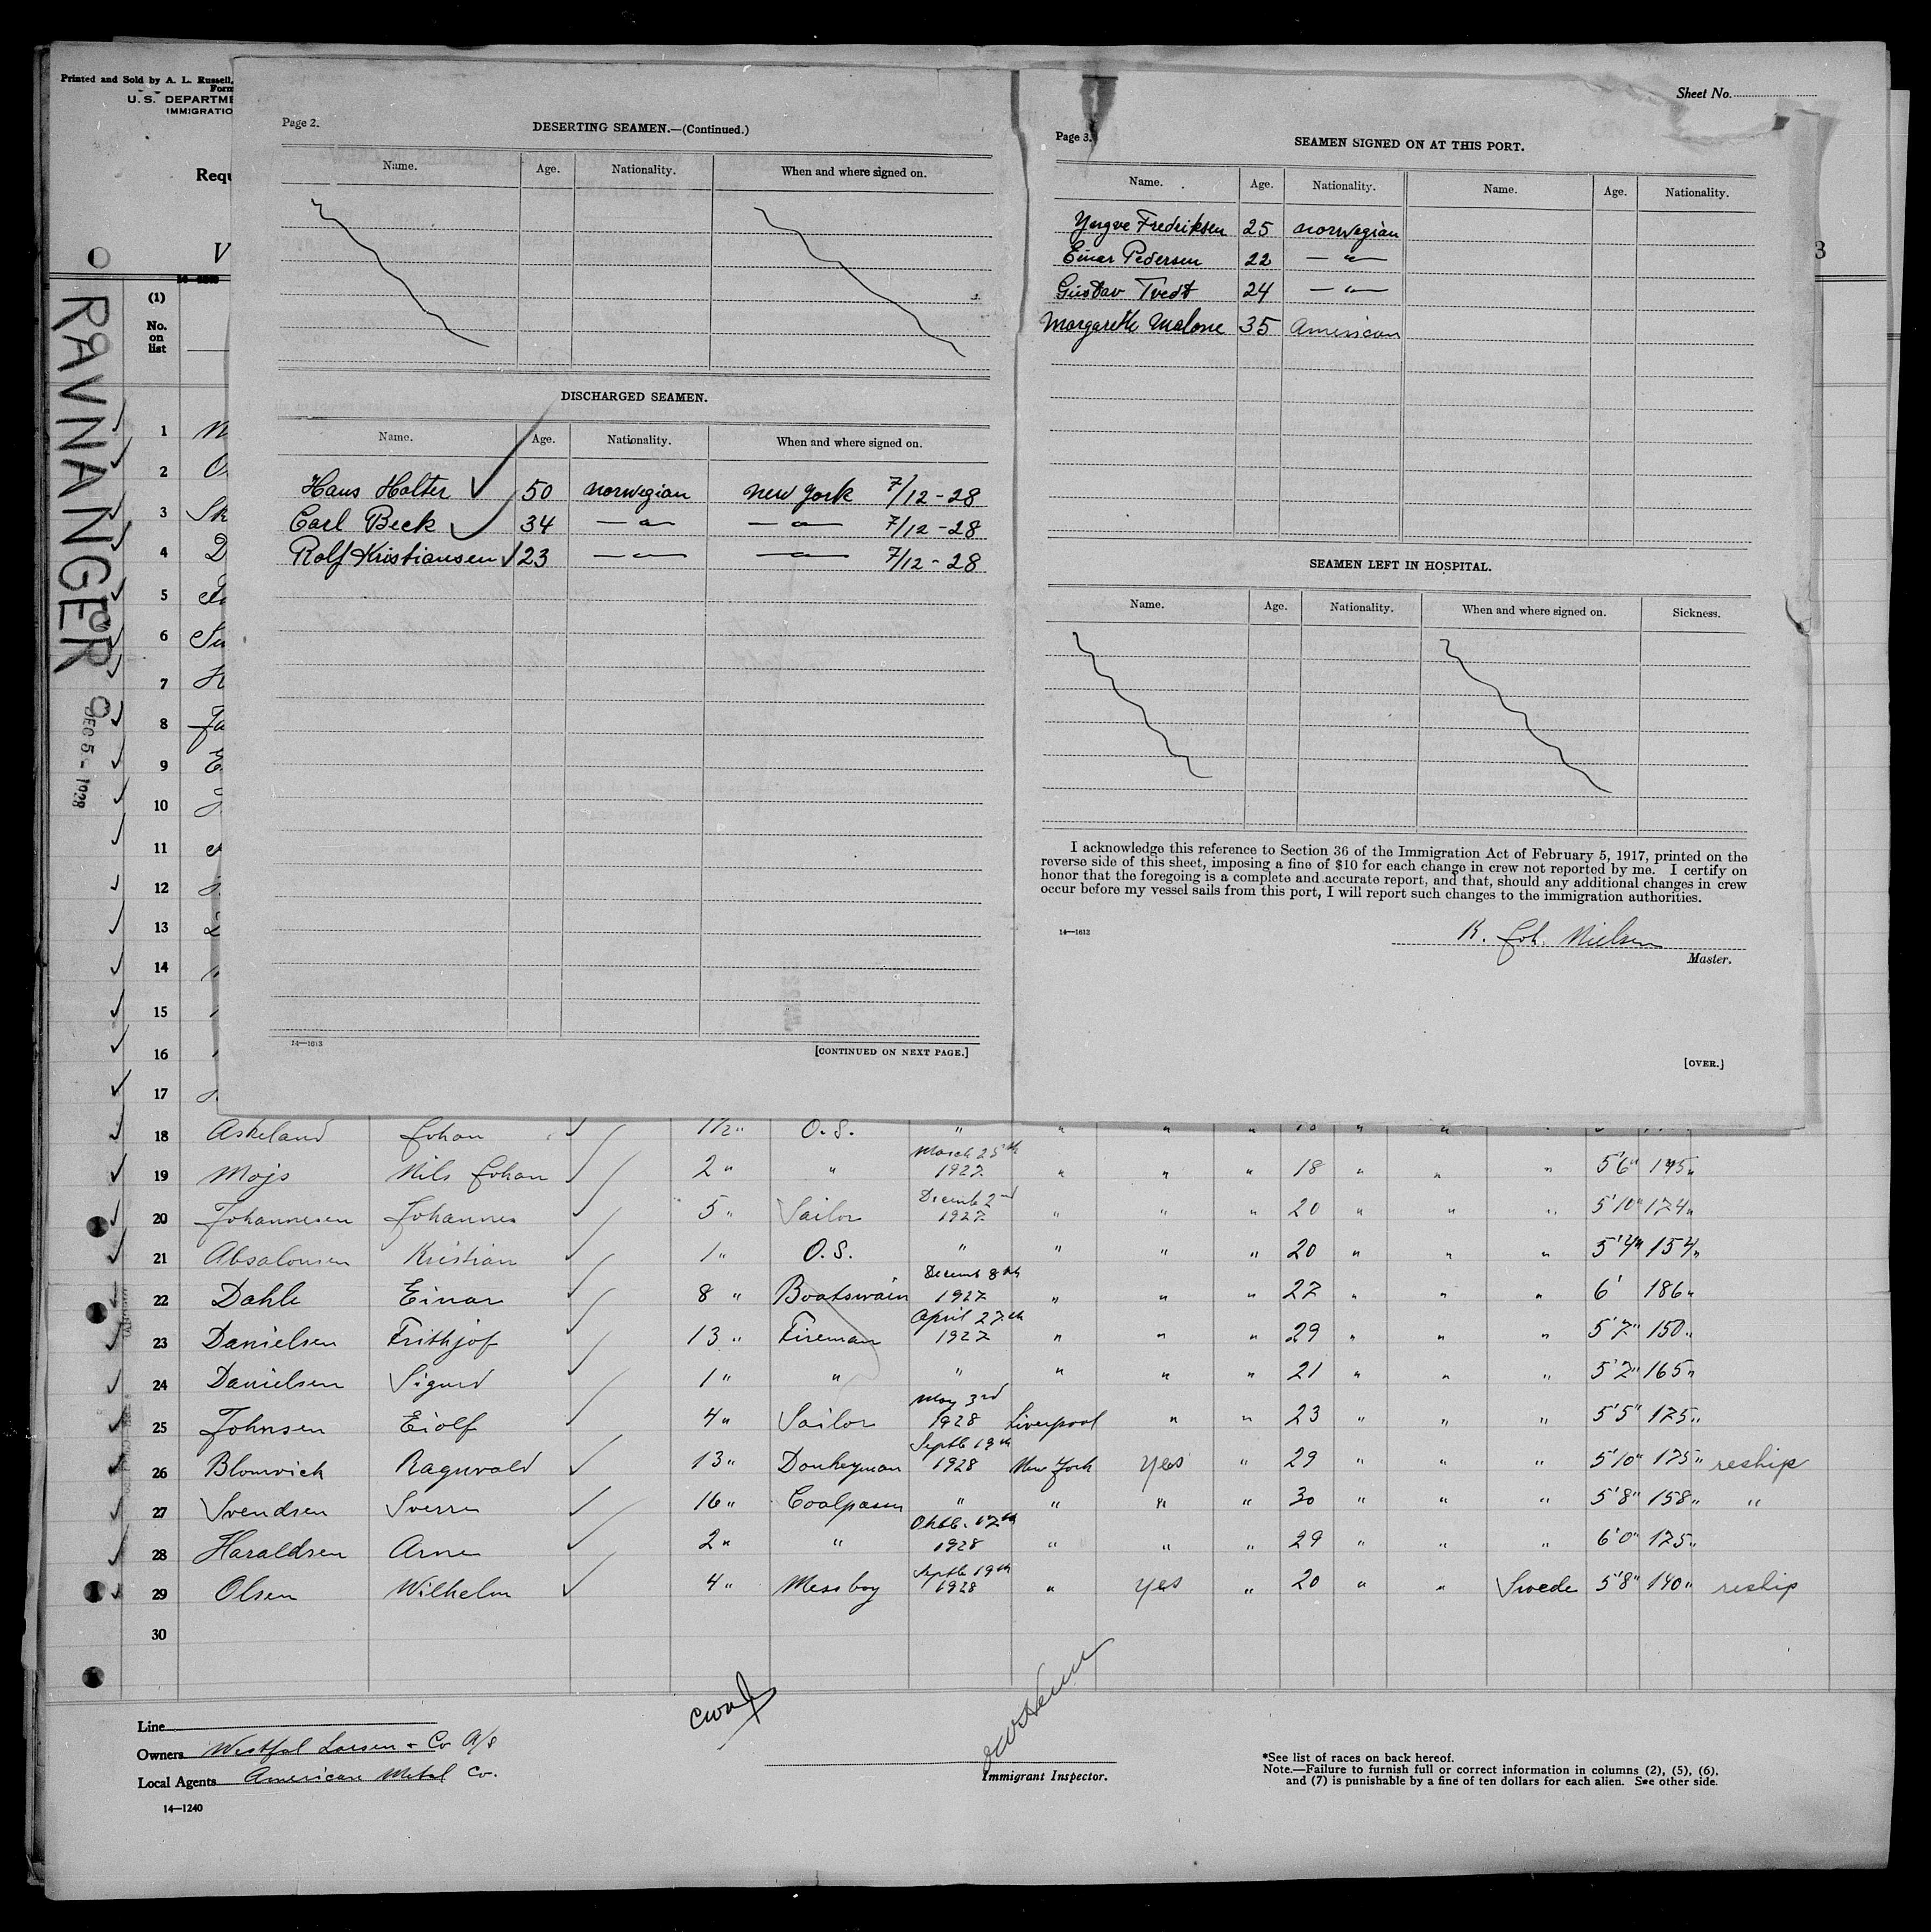 Printed and Sold by A. L. Russell,
Form
U. S. DEPARTME
IMMIGRATIO
Requ
V
RAVNANGER
DEC 5 - 1928
(1)
No.
on
list
1
2
3 Sk
4 D
5
6
7 H
8
9 E
10
11
12
13
14
15
16
17
Page 2.
DESERTING SEAMEN.—(Continued.)
Name. Age. Nationality. When and where signed on.
DISCHARGED SEAMEN.
Name. Age. Nationality. When and where signed on.
Hans Holter 50 norwegian new york 7/12-28
Carl Beck 34 — " — — " — 7/12-28
Rolf Kristiansen 23 — " — — " — 7/12-28
14—1613
[CONTINUED ON NEXT PAGE.]
Sheet No.
Page 3.
SEAMEN SIGNED ON AT THIS PORT.
Name. Age. Nationality. Name. Age. Nationality.
Yngve Fredriksen 25 norwegian
Einar Pedersen 22 — " —
Gustav Tvedt 24 — " —
Margareth Malone 35 American
SEAMEN LEFT IN HOSPITAL.
Name. Age. Nationality. When and where signed on. Sickness.
I acknowledge this reference to Section 36 of the Immigration Act of February 5, 1917, printed on the
reverse side of this sheet, imposing a fine of $10 for each change in crew not reported by me. I certify on
honor that the foregoing is a complete and accurate report, and that, should any additional changes in crew
occur before my vessel sails from this port, I will report such changes to the immigration authorities.
14—1613
K. Joh. Nielsen
Master.
[OVER.]
3
18 Askeland Johan 1 1/2 " O.S. " " " " 18 " "
19 Mojs Nils Johan 2 " " March 25th 1927 " " " 18 " " " 5'6" 145 "
20 Johannesen Johannes 5 " Sailor Decemb 2nd 1927 " " " 20 " " " 5'10" 174 "
21 Absalonsen Kristian 1 " O.S. " " " " 20 " " " 5'4" 154 "
22 Dahle Einar 8 " Boatswain Decemb 8th 1927 " " " 27 " " " 6' 186 "
23 Danielsen Frithjof 13 " Fireman April 27th 1927 " " " 29 " " " 5'7" 150 "
24 Danielsen Sigurd 1 " " " " " " 21 " " " 5'7" 165 "
25 Johnsen Eiolf 4 " Sailor May 3rd 1928 Liverpool " " 23 " " " 5'5" 175 "
26 Blomvick Ragnvald 13 " Donkeyman Septb 19th 1928 New York Yes " 29 " " " 5'10" 175 " reship
27 Svendsen Sverre 16 " Coalpasser " " " " 30 " " " 5'8" 158 " "
28 Haraldsen Arne 2 " " Oktb. 17th 1928 " " " 29 " " " 6'0" 175 "
29 Olsen Wilhelm 4 " Messboy Septb 19th 1928 " yes " 20 " " Swede 5'8" 140 " reship
30
Line
Owners Westfal Larsen & Co A/S
Local Agents American Metal Co.
14—1240
Immigrant Inspector.
*See list of races on back hereof.
Note.—Failure to furnish full or correct information in columns (2), (5), (6),
and (7) is punishable by a fine of ten dollars for each alien. See other side.